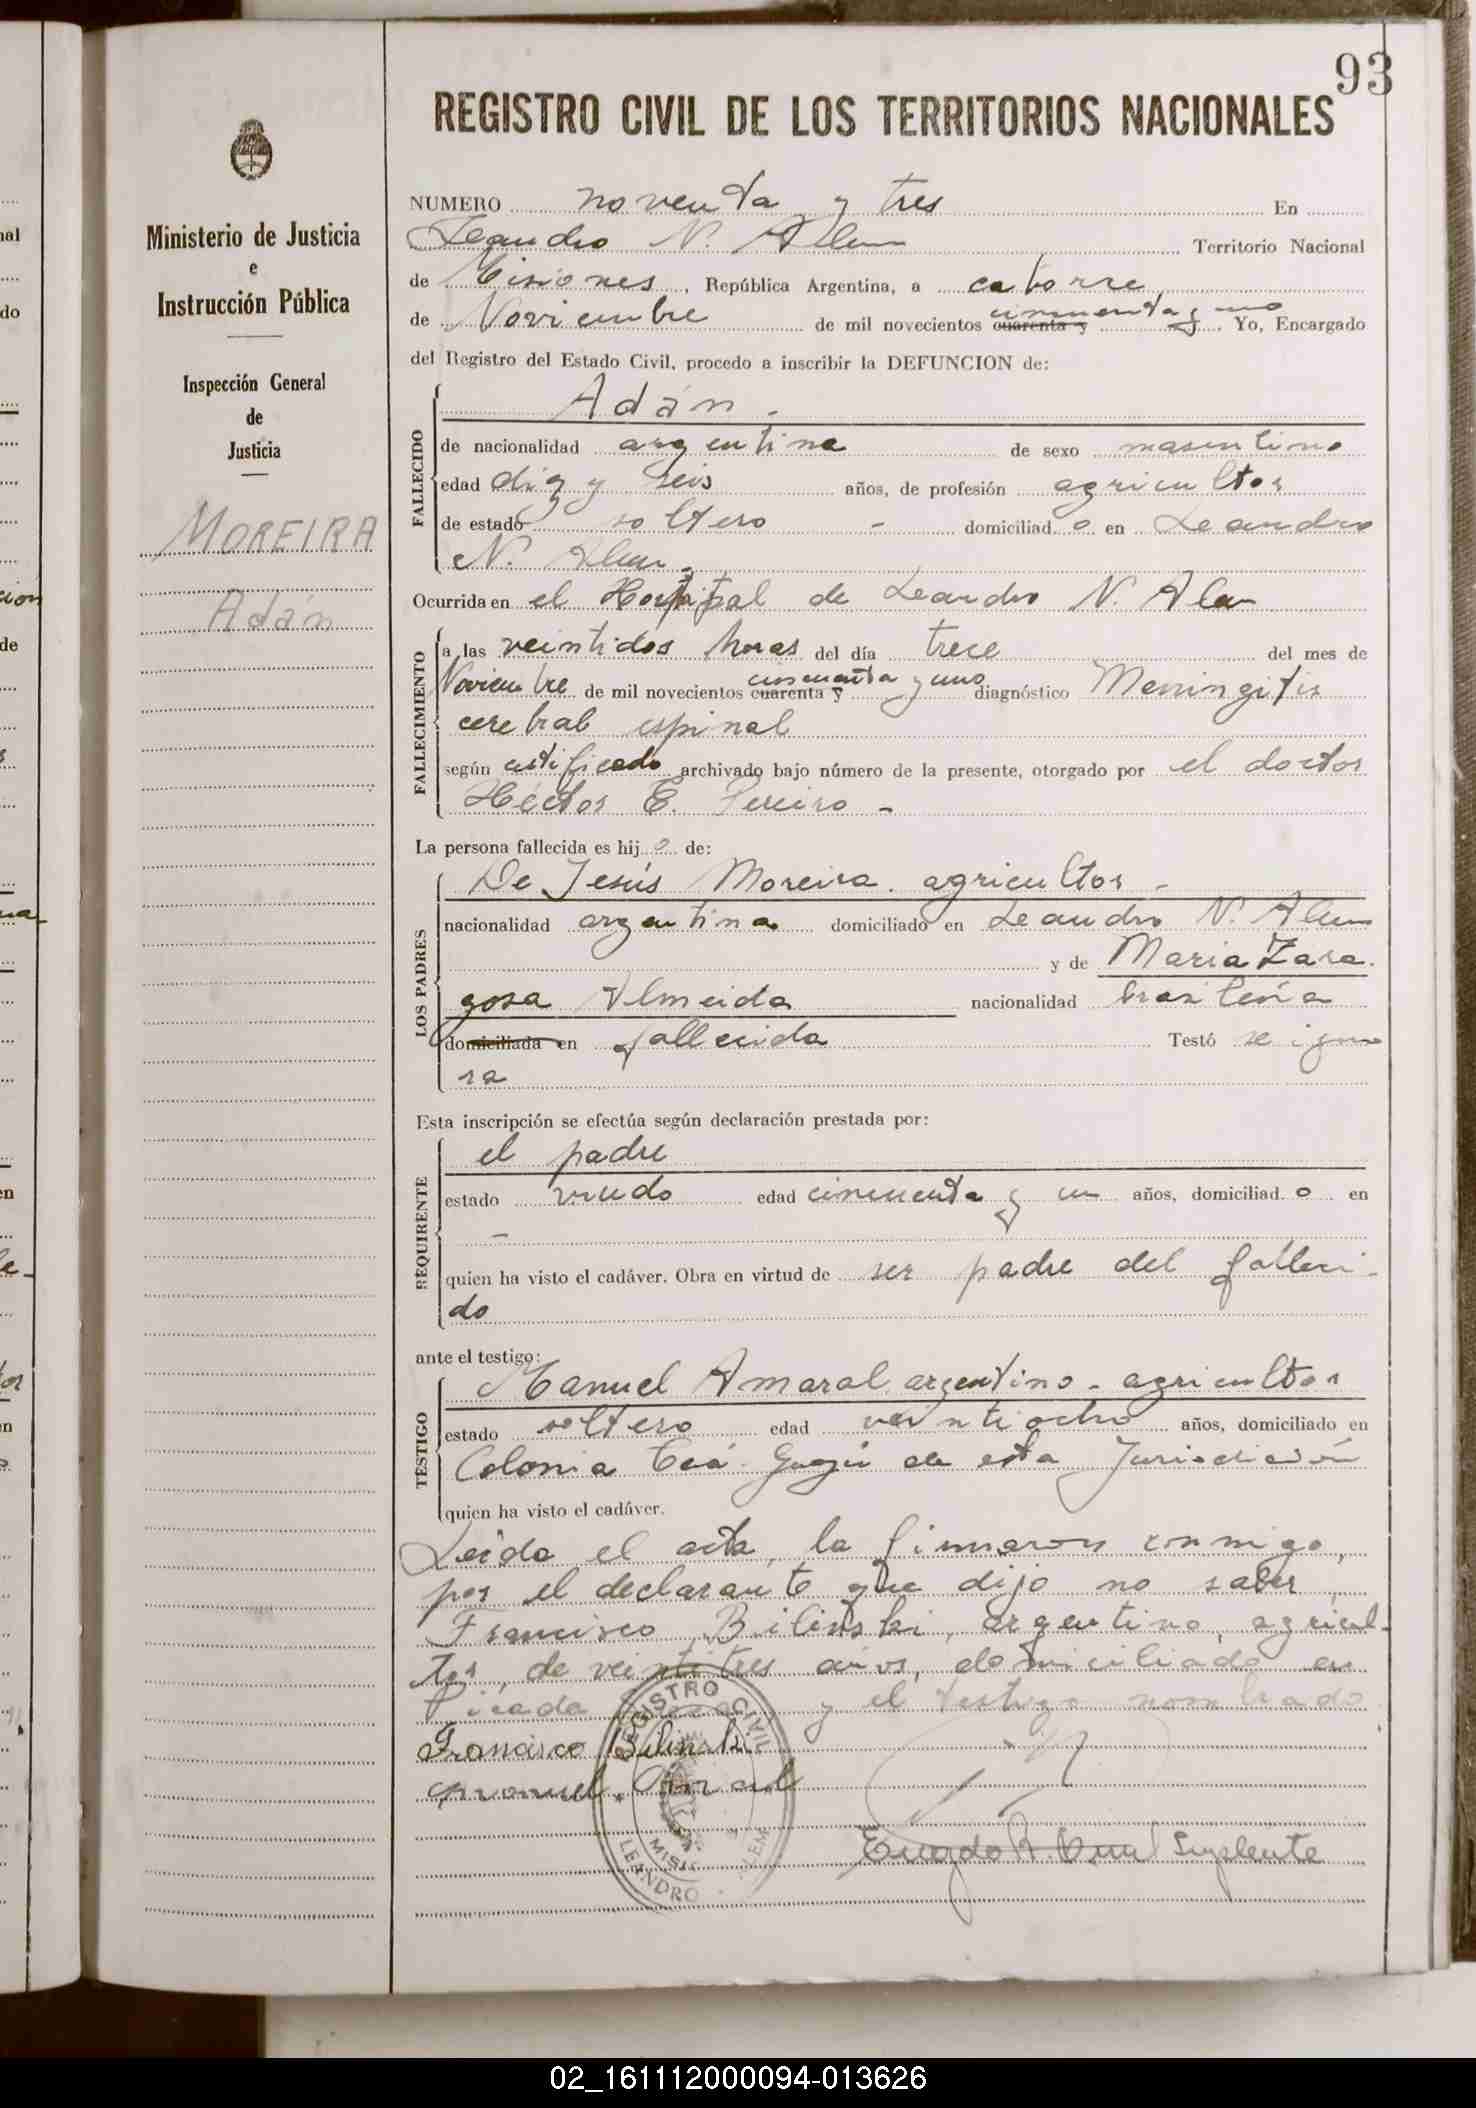 93
REGISTRO CIVIL DE LOS TERRITORIOS NACIONALES
Ministerio de Justicia
e
Instrucción Pública
Inspección General
de
Justicia
MOREIRA
Adán
NUMERO noventa y tres En
Leandro N. Alem Territorio Nacional
de Misiones, República Argentina, a catorce
de Noviembre de mil novecientos cuarenta y cincuenta y uno. Yo, Encargado
del Registro del Estado Civil, procedo a inscribir la DEFUNCION de:
FALLECIDO
Adán -
de nacionalidad argentina de sexo masculino
edad diez y seis años, de profesión agricultor
de estado soltero - domiciliado en Leandro
N. Alem
Ocurrida en el Hospital de Leandro N. Alem
FALLECIMIENTO
a las veintidos horas del día trece del mes de
Noviembre de mil novecientos cuarenta y cincuenta y uno diagnóstico Meningitis
cerebral espinal
según certificado archivado bajo número de la presente, otorgado por el doctor
Héctor E. Pereiro -
La persona fallecida es hijo de:
LOS PADRES
De Jesús Moreira. agricultor -
nacionalidad argentina domiciliado en Leandro N. Alem
y de Maria Zara.
gosa Almeida nacionalidad brasileña
domiciliada en fallecida Testó se igno
ra
Esta inscripción se efectúa según declaración prestada por:
REQUIRENTE
el padre
estado viudo edad cincuenta y un años, domiciliado en
-
quien ha visto el cadáver. Obra en virtud de ser padre del falleci-
do
ante el testigo:
TESTIGO
Manuel Amaral argentino - agricultor
estado soltero edad veintiocho años, domiciliado en
Colonia Caá-Guazú de esta Jurisdicción
quien ha visto el cadáver.
Leída el acta, la firmaron conmigo,
por el declarante que dijo no saber,
Francisco Bilinski, argentino, agricul-
tor, de veintitres años, domiciliado en
Picada y el testigo nombrado
Francisco Bilinski
Manuel Amaral
REGISTRO CIVIL
LEANDRO ALEM
Suplente
02_161112000094-013626